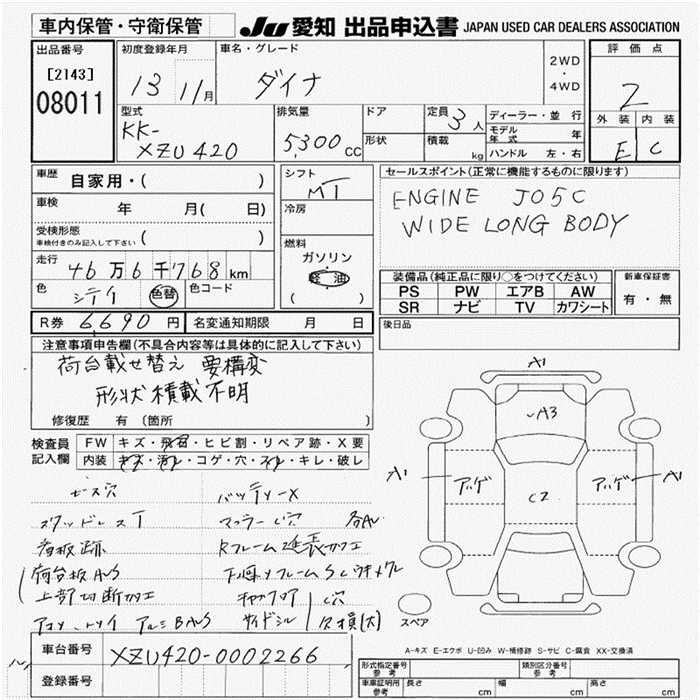 車内保管・守衛保管
JU 愛知 出品申込書 JAPAN USED CAR DEALERS ASSOCIATION
出品番号
[2143]
08011
初度登録年月
13 11月
車名・グレード
ダイナ
2WD
・
4WD
評価点
2
外装 内装
E C
型式
KK-
XZU420
排気量
5,300 cc
ドア
形状
定員 3人
積載 kg
ディーラー・並行
モデル年式 年
ハンドル 左・右
車歴 自家用・( )
車検 年 月( 日)
受検形態
車検付きのみ記入して下さい ( )
走行 46万6千768km
色 シテイ 色替 色コード
R券 6,690円 名変通知期限 月 日
シフト
MT
冷房
燃料
ガソリン
軽油
( )
セールスポイント(正常に機能するものに限ります)
ENGINE J05C
WIDE LONG BODY
装備品(純正品に限り○をつけてください)
PS PW エアB AW
SR ナビ TV カワシート
新車保証書
有・無
後日品
注意事項申告欄(不具合内容等は具体的に記入して下さい)
荷台載せ替え 要構変
形状積載不明
修復歴 有 (箇所 )
検査員記入欄
FW キズ・飛石・ヒビ割・リペア跡・X要
内装 キズ・汚レ・コゲ・穴・スレ・キレ・破レ
ビス穴 バッテリーX
スタッドレスT マフラー穴
看板跡 Rフレーム延長加工
荷台板
上部切断加工
穴
欠損(大)
A1
A3
A1 アッゲ C2 アッゲ A1
スペア
A-キズ E-エクボ U-凹み W-補修跡 S-サビ C-腐食 XX-交換済
車台番号 XZU420-0002266
登録番号
形式指定番号 参考
類別区分番号 参考
車庫証明用 参考 長さ cm 幅 cm 高さ cm